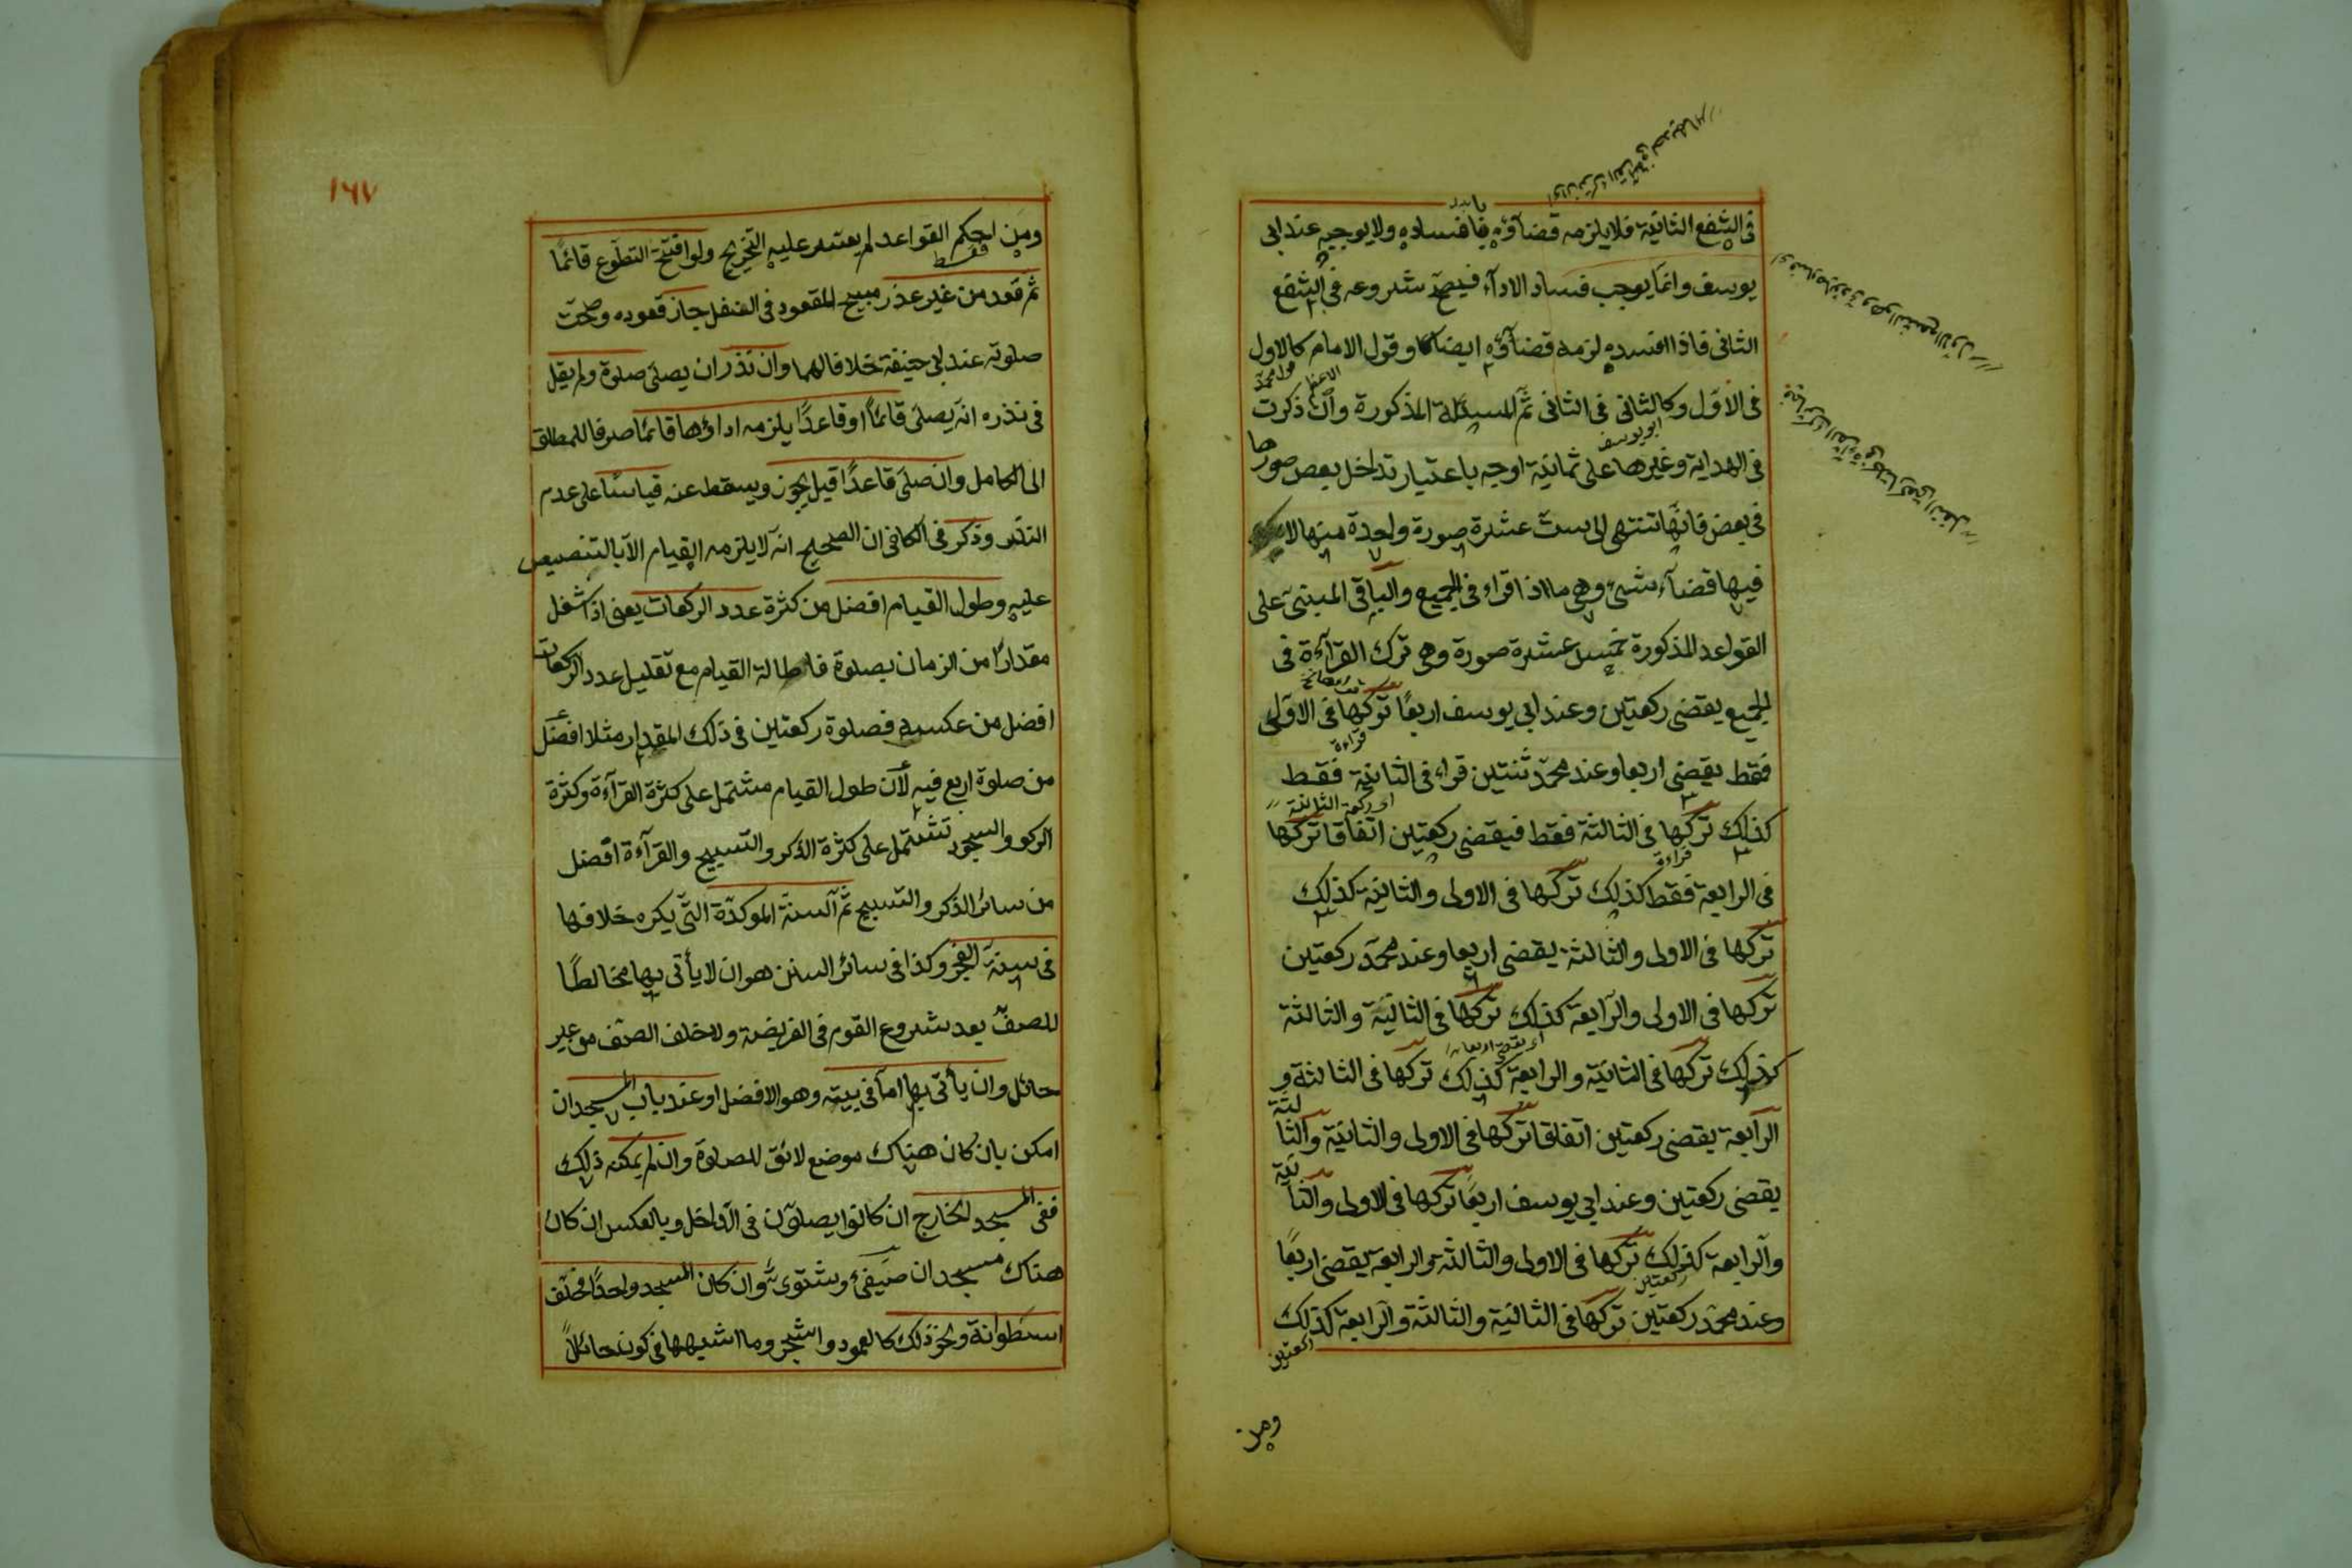 فى الشفع الثانية فلا يلزمه قضاؤه بافساده ولا يوجبه عند ابى
يوسف وانما يوجب فساد الاداء فيصح شروعه فى الشفع
الثانى فاذا افسده لزمه قضاؤه ايضا وقول الامام كالاول
فى الاول وكالثانى فى الثانى ثم المسئلة المذكورة وان ذكرت
فى الهداية وغيرها على ثمانية اوجه باعتبار تداخل بعض صورها
فى بعض فانها تنتهى الى ست عشرة صورة واحدة منها لا
فيها قضاء شئ وهى ما اذا قراء فى الجميع والباقى المبنى على
القواعد المذكورة خمس عشرة صورة وهى ترك القراءة فى
الجميع يقضى ركعتين وعند ابى يوسف اربعا تركها فى الاولى
فقط يقضى اربعا وعند محمد ثنتين قراء فى الثانية فقط
كذلك تركها فى الثالثة فقط فيقضى ركعتين اتفاقا تركها
فى الرابعة فقط كذلك تركها فى الاولى والثانية كذلك
تركها فى الاولى والثالثة يقضى اربعا وعند محمد ركعتين
تركها فى الاولى والرابعة كذلك تركها فى الثانية والثالثة
كذلك تركها فى الثانية والرابعة كذلك تركها فى الثالثة و
الرابعة يقضى ركعتين اتفاقا تركها فى الاولى والثانية والثالثة
يقضى ركعتين وعند ابى يوسف اربعا تركها فى الاولى والثانية
والرابعة كذلك تركها فى الاولى والثالثة والرابعة يقضى اربعا
وعند محمد ركعتين تركها فى الثانية والثالثة والرابعة كذلك
ركعتين
ومن
١٦٧
ومن احكم القواعد لم يعتسر عليه التخريج ولو افتتح التطوع قائما
ثم قعد من غير عذر مبيح للقعود فى النفل جاز قعوده وصحت
صلوته عند ابى حنيفة خلافا لهما وان نذر ان يصلى صلوة ولم يقل
فى نذره انه يصلى قائما او قاعدا يلزمه اداؤها قائما صرفا للمطلق
الى الكامل وان صلى قاعدا قيل يجوز ويسقط عنه قياسا على عدم
النذر وذكر فى الكافى ان الصحيح انه لا يلزمه القيام الا بالتنصيص
عليه وطول القيام افضل من كثرة عدد الركعات يعنى اذا شغل
مقدارا من الزمان بصلوة فاطالة القيام مع تقليل عدد الركعات
افضل من عكسه فصلوة ركعتين فى ذلك المقدار مثلا افضل
من صلوة اربع فيه لان طول القيام مشتمل على كثرة القراءة وكثرة
الركوع والسجود تشتمل على كثرة الذكر والتسبيح والقراءة افضل
من سائر الذكر والتسبيح ثم السنة الموكدة التى يكره خلافها
فى سنة الفجر وكذا فى سائر السنن هو ان لا يأتى بها مخالطا
للصف بعد شروع القوم فى الفريضة ولا خلف الصف من غير
حائل وان يأتى بها اما فى بيته وهو الافضل او عند باب المسجد ان
امكن بان كان هناك موضع لائق للصلوة وان لم يمكنه ذلك
ففى المسجد الخارج ان كانوا يصلون فى الداخل وبالعكس ان كان
هناك مسجدان صيفى وشتوى وان كان المسجد واحدا فخلف
اسطوانة ونحو ذلك كالعمود والشجر وما اشبهها فى كونه حائلا